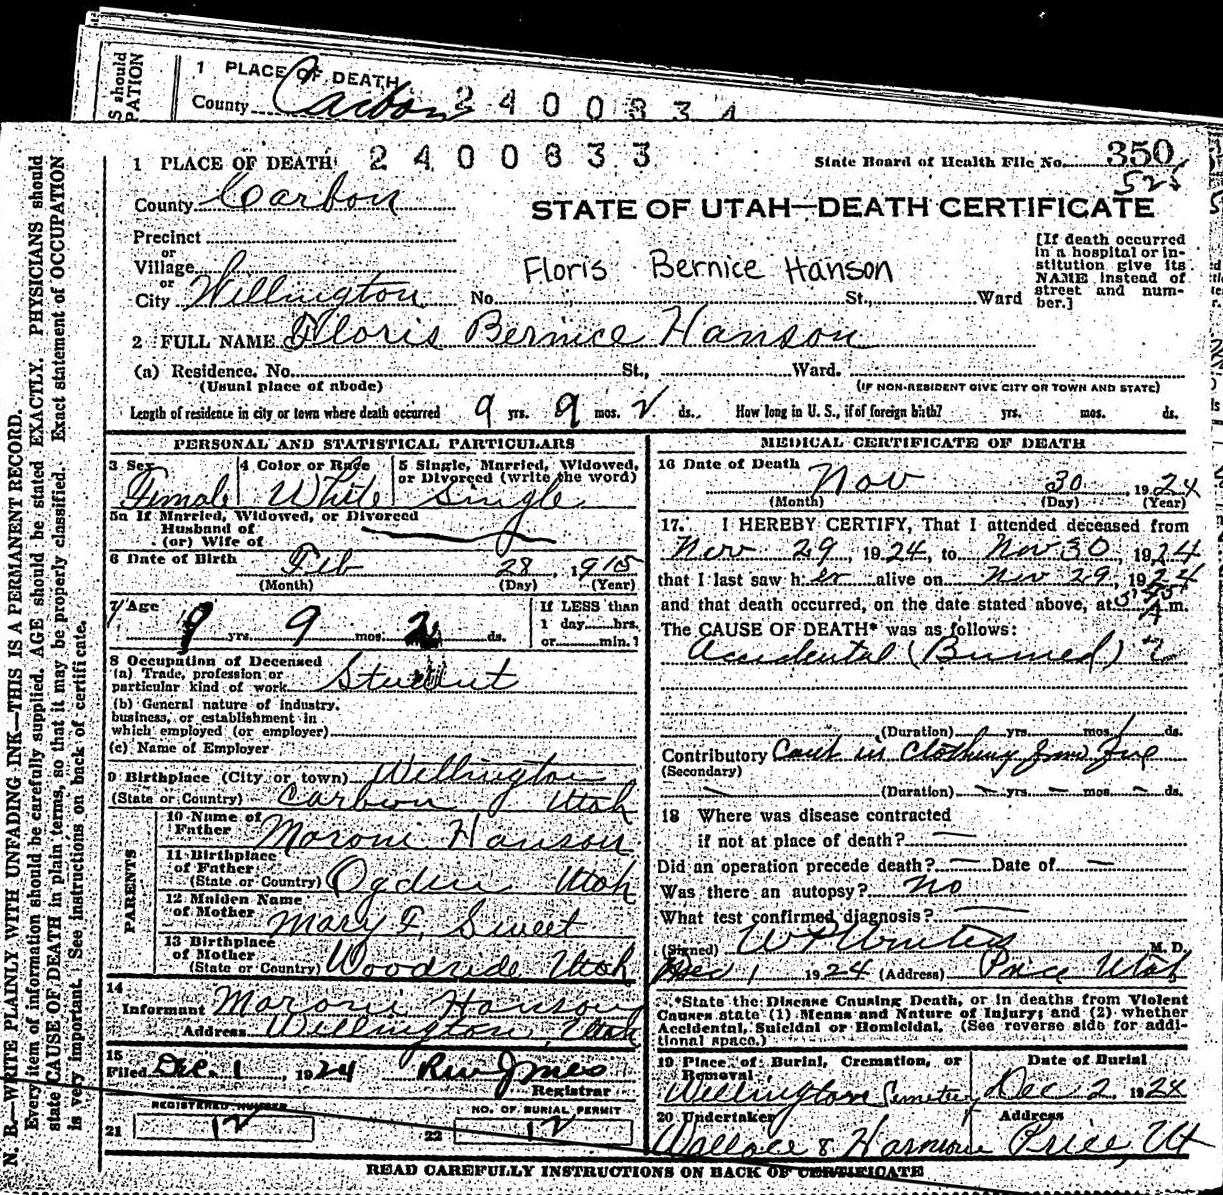 S should
PATION
1 PLACE OF DEATH
County Carbon 2 4 0 0 8 3 4
1 PLACE OF DEATH 2 4 0 0 8 3 3 State Board of Health File No. 350
525
County Carbon
STATE OF UTAH—DEATH CERTIFICATE
Precinct
or
Village
or
City Wellington No. St., Ward
Floris Bernice Hanson
[If death occurred
in a hospital or in-
stitution give its
NAME instead of
street and num-
ber.]
2 FULL NAME Floris Bernice Hanson
(a) Residence. No. St., Ward.
(Usual place of abode) (IF NON-RESIDENT GIVE CITY OR TOWN AND STATE)
Length of residence in city or town where death occurred 9 yrs. 9 mos. 2 ds. How long in U. S., if of foreign birth? yrs. mos. ds.
PERSONAL AND STATISTICAL PARTICULARS
3 Sex Female
4 Color or Race White
5 Single, Married, Widowed,
or Divorced (write the word)
Single
5a If Married, Widowed, or Divorced
Husband of
(or) Wife of
6 Date of Birth Feb 28, 1915
(Month) (Day) (Year)
7 Age 9 yrs. 9 mos. 2 ds.
If LESS than
1 day hrs.
or min.?
8 Occupation of Deceased
(a) Trade, profession or
particular kind of work Student
(b) General nature of industry,
business, or establishment in
which employed (or employer)
(c) Name of Employer
9 Birthplace (City or town) Wellington
(State or Country) Carbon Utah
PARENTS
10 Name of
Father Moroni Hanson
11 Birthplace
of Father
(State or Country) Ogden Utah
12 Maiden Name
of Mother Mary F. Sweet
13 Birthplace
of Mother
(State or Country) Woodside, Utah
14
Informant Moroni Hanson
Address Wellington, Utah
15
Filed Dec. 1, 1924
Registrar
REGISTERED NUMBER
21 12
NO. OF BURIAL PERMIT
22 12
MEDICAL CERTIFICATE OF DEATH
16 Date of Death Nov 30, 1924
(Month) (Day) (Year)
17. I HEREBY CERTIFY, That I attended deceased from
Nov 29, 1924, to Nov 30, 1924
that I last saw her alive on Nov 29, 1924
and that death occurred, on the date stated above, at A m.
The CAUSE OF DEATH* was as follows:
Accidental (Burned)
(Duration) yrs. mos. 1 ds.
Contributory Caut in clothing from fire
(Secondary)
(Duration) — yrs. — mos. — ds.
18 Where was disease contracted
if not at place of death? —
Did an operation precede death? — Date of —
Was there an autopsy? no
What test confirmed diagnosis? —
(Signed) M. D.
Dec 1, 1924 (Address) Price Utah
*State the Disease Causing Death, or in deaths from Violent
Causes state (1) Means and Nature of Injury; and (2) whether
Accidental, Suicidal or Homicidal. (See reverse side for addi-
tional space.)
19 Place of Burial, Cremation, or
Removal
Wellington Cemetery
Date of Burial
Dec 2 1924
20 Undertaker
Wallace & Harmon
Address
Price, Ut
READ CAREFULLY INSTRUCTIONS ON BACK OF CERTIFICATE
N. B.—WRITE PLAINLY WITH UNFADING INK—THIS IS A PERMANENT RECORD.
Every item of information should be carefully supplied. AGE should be stated EXACTLY. PHYSICIANS should
state CAUSE OF DEATH in plain terms, so that it may be properly classified. Exact statement of OCCUPATION
is very important. See instructions on back of certificate.